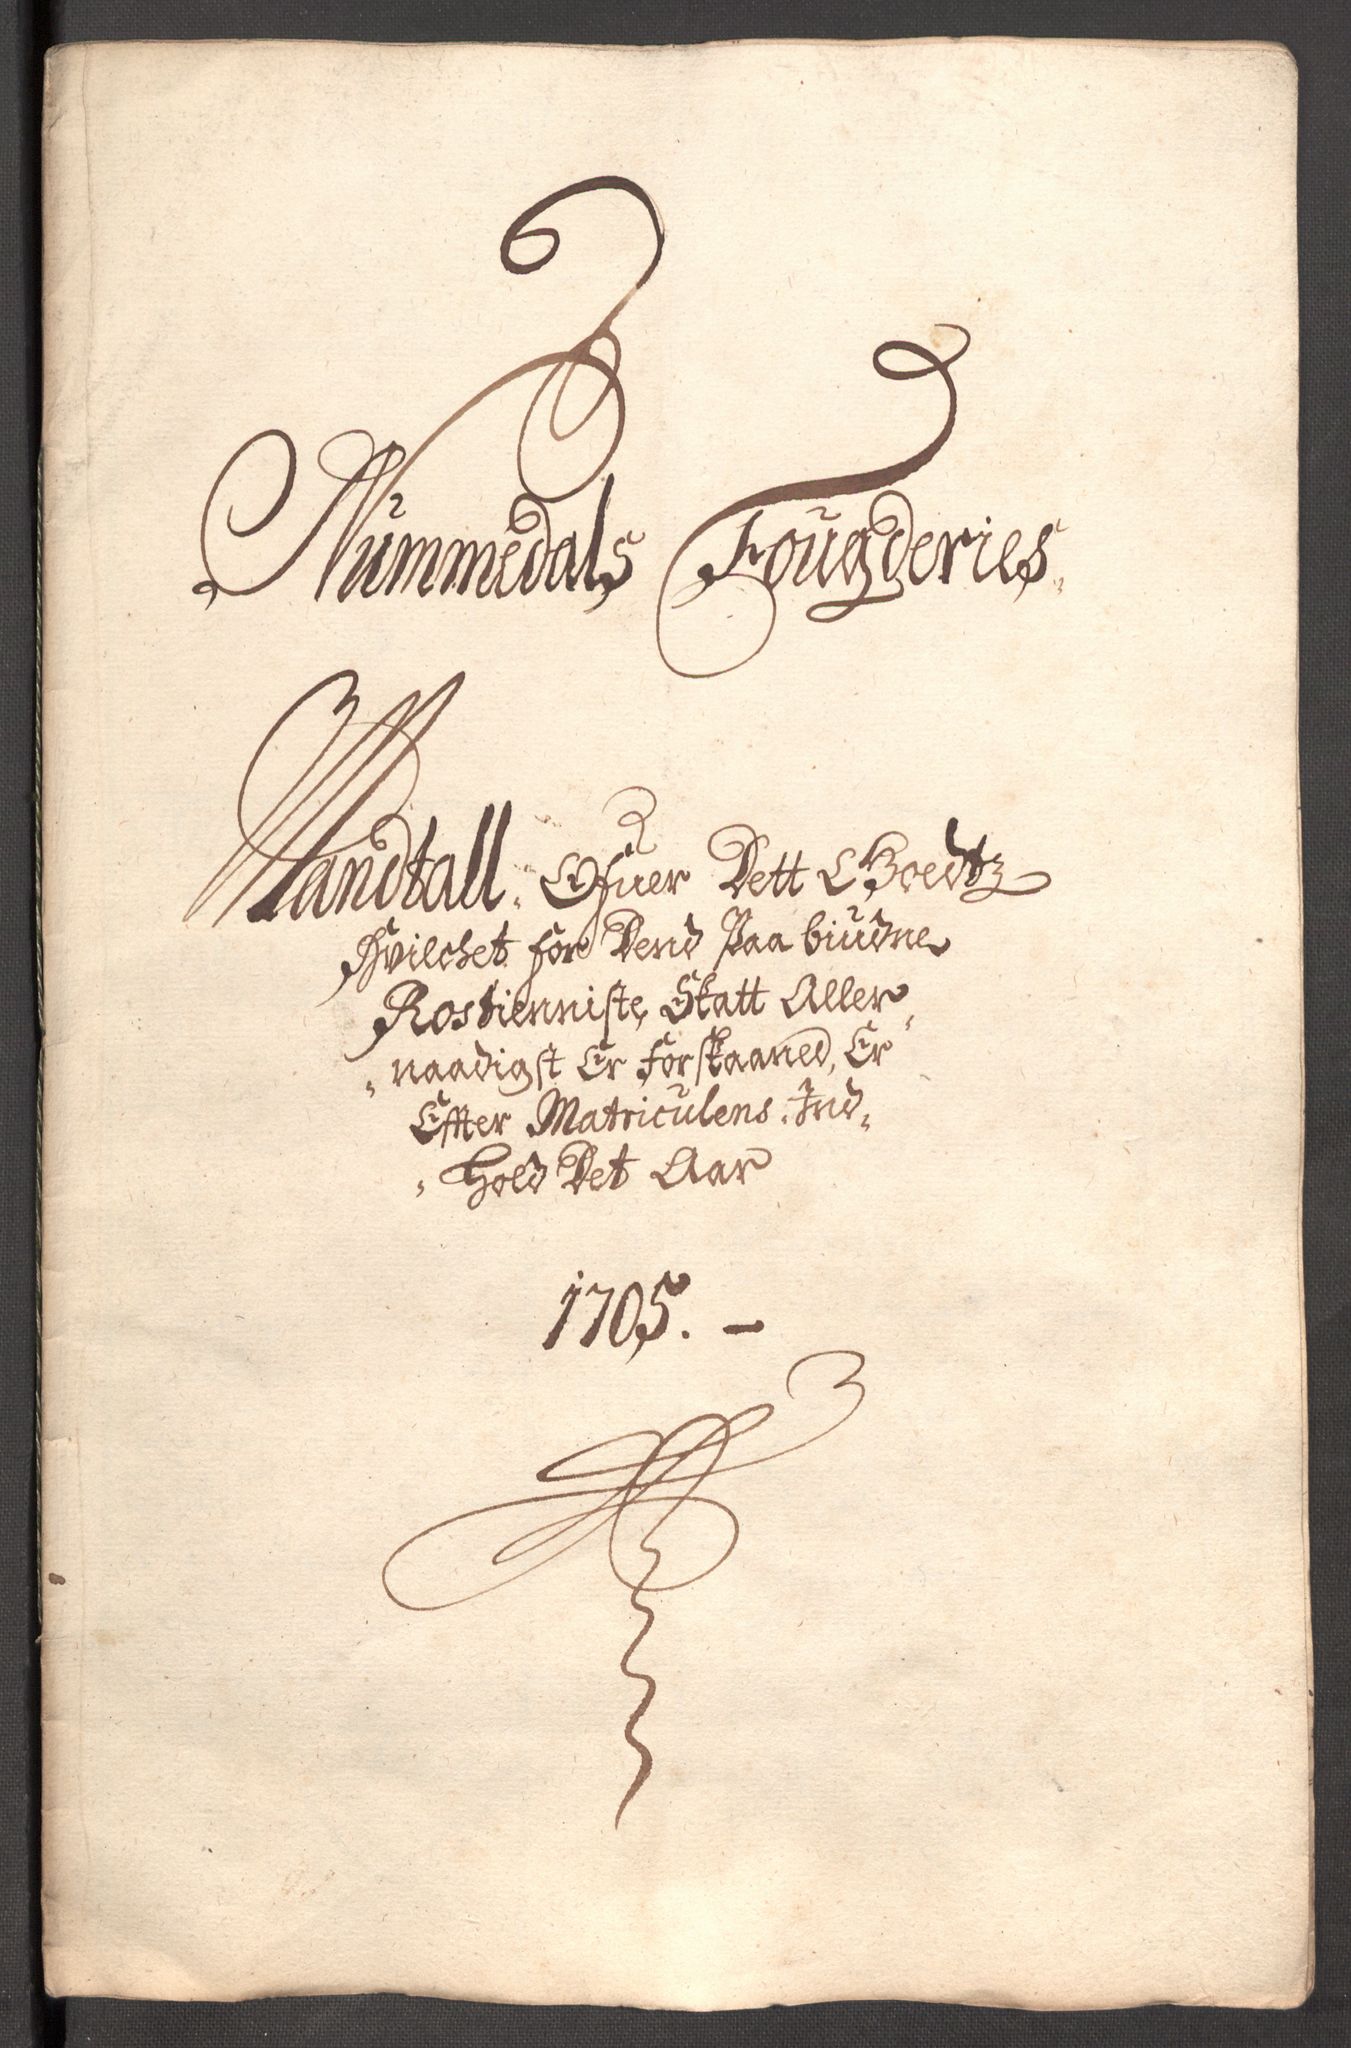 Nummedals Fougderies
Mandtall Ofuer Dett Goedtz
Hvilchet for Dend Paabiudne
Rostienniste Skatt Aller
naadigst Er forskaaned, Er
Effter Matriculens Ind
hold Det Aar
1705.